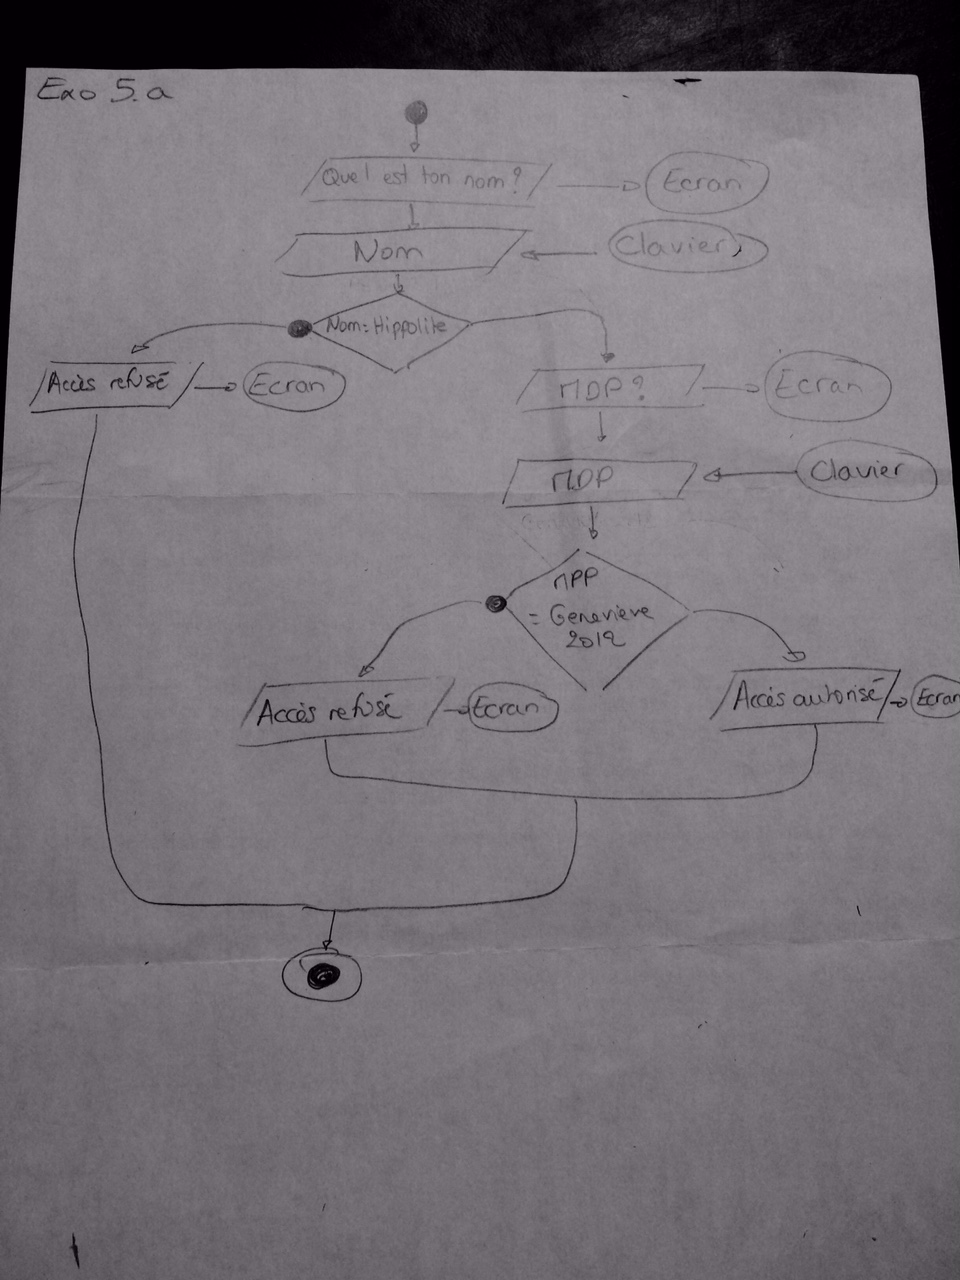 Exo 5.a
Quel est ton nom?
Ecran
Nom
Clavier
Nom=Hippolite
Accès refusé
Ecran
MDP?
Ecran
MDP
Clavier
MPP
= Geneviève
2012
Accès refusé
Ecran
Accès autorisé
Ecran